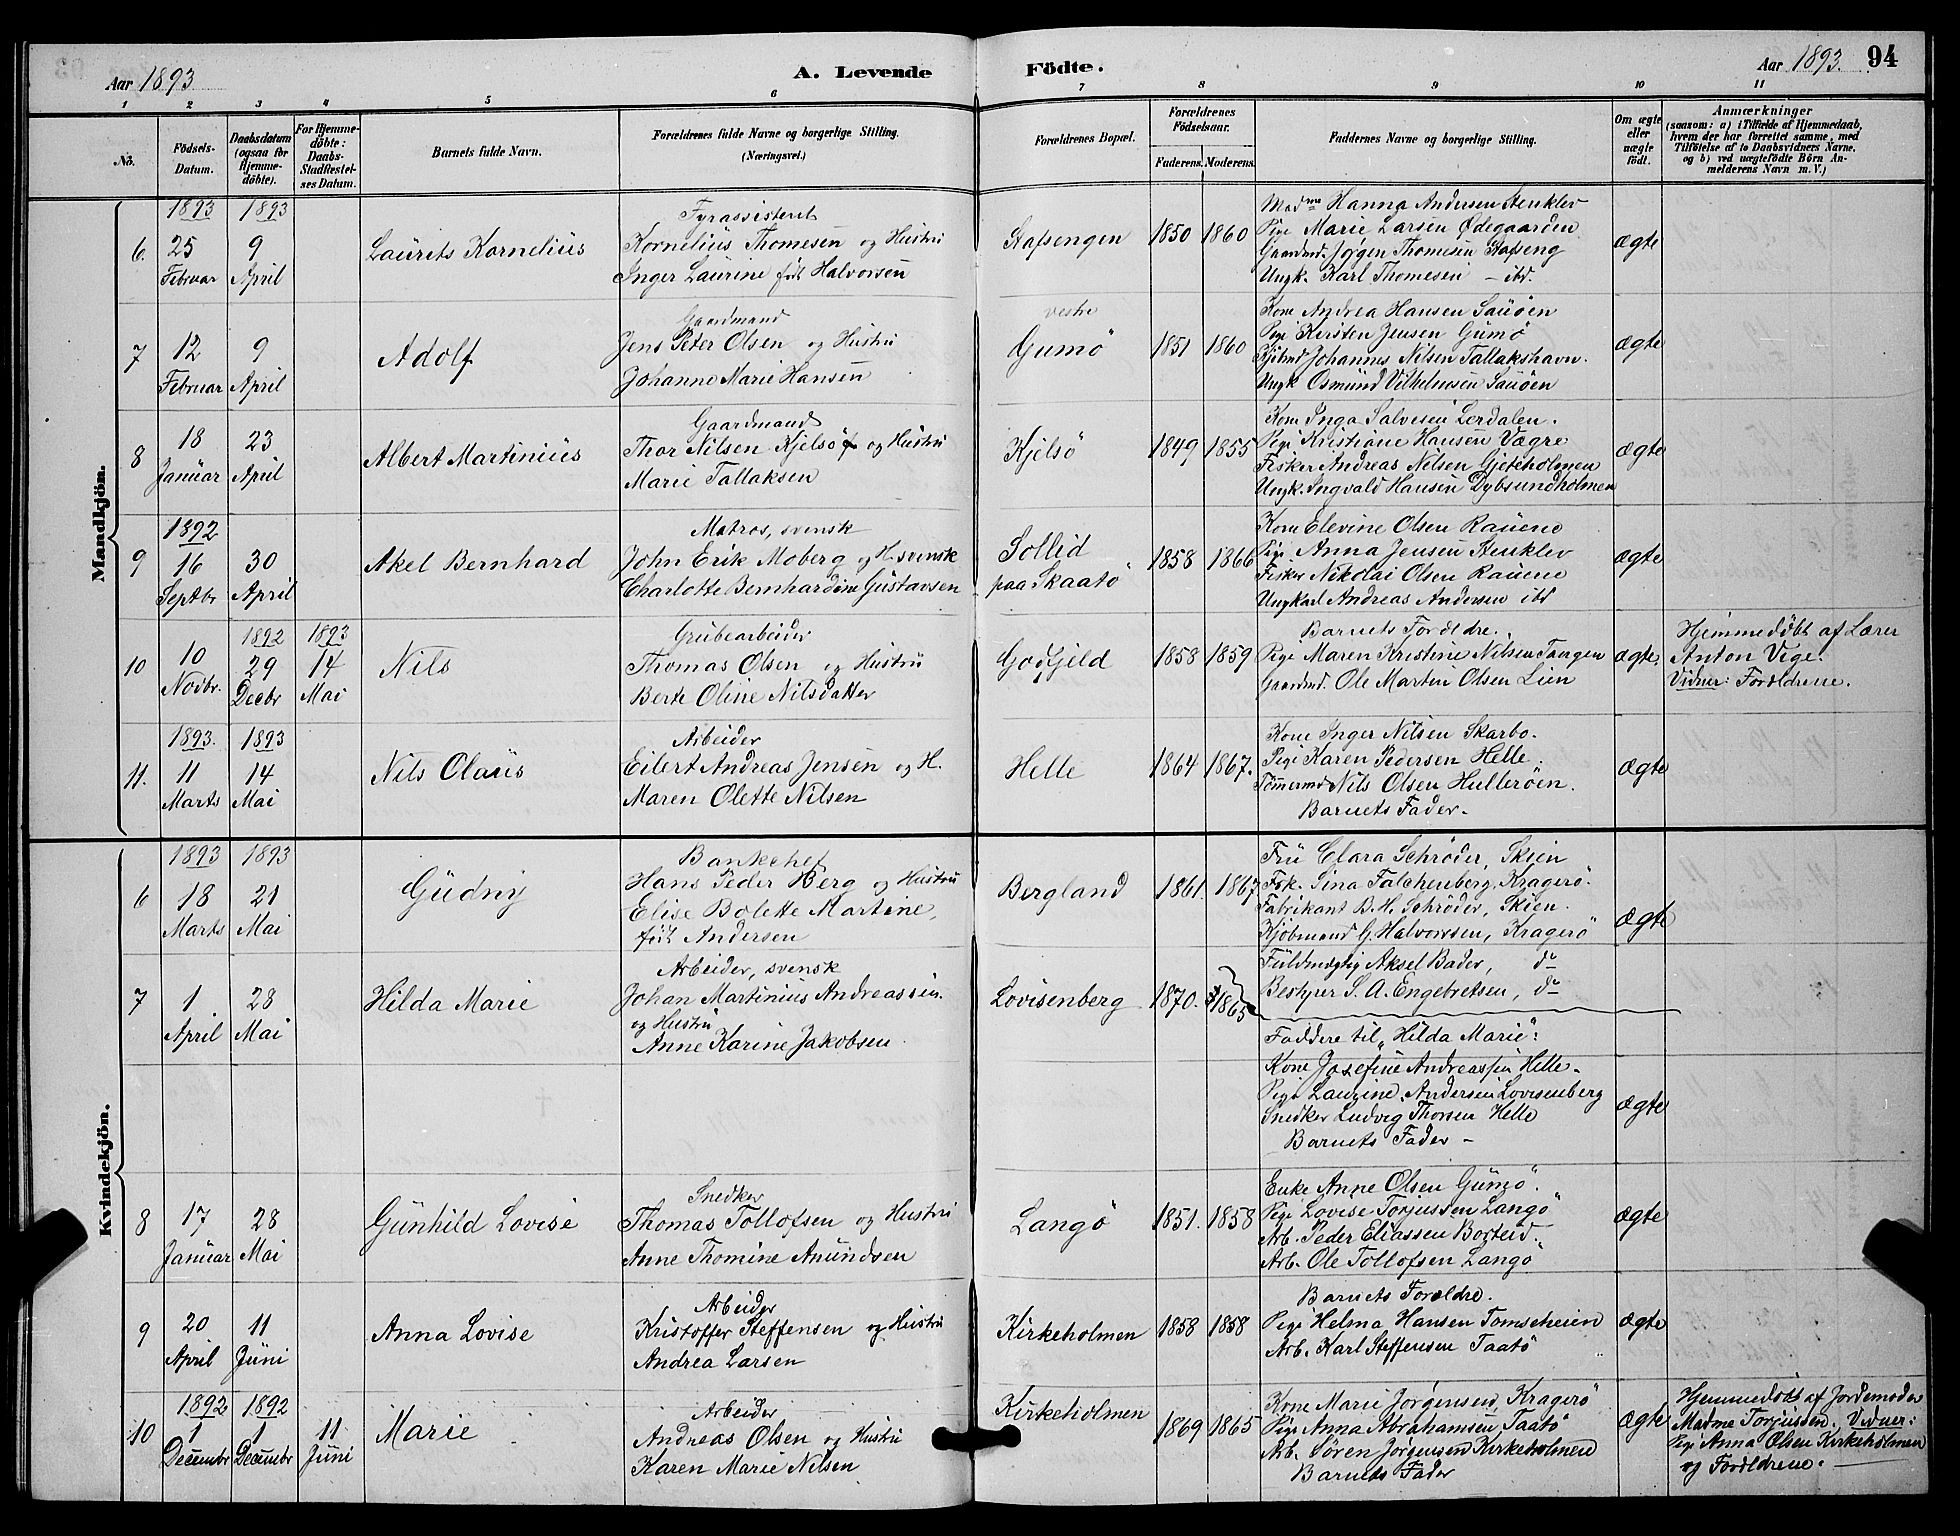 Aar 1893 A. Levende Födte. Aar 1893. 94
1 2 3 4 5 6 7 8 9 10 11
No.
Födsels-Datum.
Daabsdatum (ogsaa för Hjemme-döbte).
For Hjemme-döbte: Daabs-Stadfæstel-ses Datum.
Barnets fulde Navn.
Forældrenes fulde Navne og borgerlige Stilling.
(Næringsvei.)
Forældrenes Bopæl.
Forældrenes Födselsaar.
Faderens. Moderens.
Faddernes Navne og borgerlige Stilling.
Om ægte eller uægte födt.
Anmærkninger
(saasom: a) i Tilfælde af Hjemmedaab,
hvem der har forrettet samme, med
Tilföielse af to Daabsvidners Navne,
og b) ved uægtefödte Börn An-
melderens Navn m. V.)
Mandkjön.
6. 1893 25 Februar
1893 9 April
Laurits Kornelius
Fyrassistent
Kornelius Thomesen og Hustru
Inger Laurine født Halvorsen
Stafsengen 1850 1860
Madme Hanna Andersen Stenklev
Pige Marie Larsen Ødegaarden
Gaardmd. Jørgen Thomesen Stafseng
Ungk. Karl Thomesen – ibd.
ægte
7 12 Februar
9 April
Adolf
Gaardmand
Jens Peter Olsen og Hustru
Johanne Marie Hansen
vestre
Gumö 1851 1860
Kone Andrea Hansen Sauöen
Pige Kirsten Jensen Gumö
Johannes Nilsen Tallakshavn.
Ungk. Osmund Vilhelmsen Sauöen
ægte
8 18 Januar
23 April
Albert Martinius
Gaardmand
Thor Nilsen Kjelsö og Hustru
Marie Tallaksen
Kjelsö 1849 1855
Kone Inga Salvesen Lerdalen.
Pige Kristiane Hansen Vægre
Fisker Andreas Nilsen Gjeteholmen
Ungk. Ingvald Hansen Dybsundholmen
ægte
9 1892 16 Septbr
30 April
Akel Bernhard
Matros, svensk
John Erik Moberg og H. svensk
Charlotte Bernhardine Gustavsen
Sollid
paa Skaatö 1858 1866
Kone Elevine Olsen Rauene
Pige Anna Jensen Stenklev
Fisker Nikolai Olsen Rauene
Ungkarl Andreas Andersen ibd
ægte
10 10 Novbr.
1892 29 Decbr
1893 14 Mai
Nils
Grubearbeider
Thomas Olsen og Hustru
Berte Oline Nilsdatter
Godfjeld 1858 1859
Barnets Forældre.
Pige Maren Kristine Nilsen Tangen
Gaardmd. Ole Martin Olsen Lien
ægte.
Hjemmedöbt af Lærer
Anton Vige.
Vidner: Forældrene.
11. 1893. 11 Marts
1893 14 Mai
Nils Olaus
Arbeider
Eilert Andreas Jensen og H.
Maren Olette Nilsen
Helle 1864 1867.
Kone Inger Nilsen Skarbo.
Pige Karen Pedersen Helle.
Tömermd Nils Olsen Hulleröen.
Barnets Fader.
ægte
Kvindekjön.
6 1893 18 Marts
1893 21 Mai
Gudny
Bankchef
Hans Peder Berg og Hustru
Elise Bolette Martine,
født Andersen
Bergland 1861. 1867
Fru Clara Schröder, Skien
Frk. Sina Falchenberg, Kragerö.
Fabrikant B. H. Schröder, Skien.
Kjöbmand G. Halvorsen, Kragerö
Fuldmægtig Aksel Bader, do
Bestyrer S. A. Engebretsen, do
ægte
7 1 April
28 Mai
Hilda Marie
Arbeider, svensk
Johan Martinius Andreassen.
og Hustru
Anne Karine Jakobsen
Lovisenberg 1870. 1865
Faddere til "Hilda Marie":
Kone Josefine Andreassen Helle.
Pige Laurine Andersen Lovisenberg
Snedker Ludvig Thorsen Helle
Barnets Fader –
ægte
8 17 Januar
28 Mai
Gunhild Lovise
Snedker
Thomas Tollofsen og Hustru
Anne Thomine Amundsen
Langö 1851. 1858
Enke Anne Olsen Gumö.
Pige Lovise Torjussen Langö
Arb. Peder Eliassen Borteid.
Arb. Ole Tollofsen Langö
ægte
9 20 April
11 Juni
Anna Lovise
Arbeider
Kristoffer Steffensen og Hustru
Andrea Larsen
Kirkeholmen 1858 1858
Barnets Forældre.
Pige Helma Hansen Tomseheien
Arb. Karl Steffensen Taatö
ægte
10 1892 1 Decembr
1892 1 Decembr
11 Juni
Marie
Arbeider
Andreas Olsen og Hustru
Karen Marie Nilsen
Kirkeholmen 1869 1865
Kone Marie Jorgensen, Kragerö
Pige Anna Abrahamsen Taatö
Arb. Sören Jörgensen Kirkeholmen
Barnets Fader
ægte
Hjemmedöbt af Jordemoder
Madme Torjussen. Vidner:
Pige Anna Olsen Kirkeholmen
og Forældrene. –